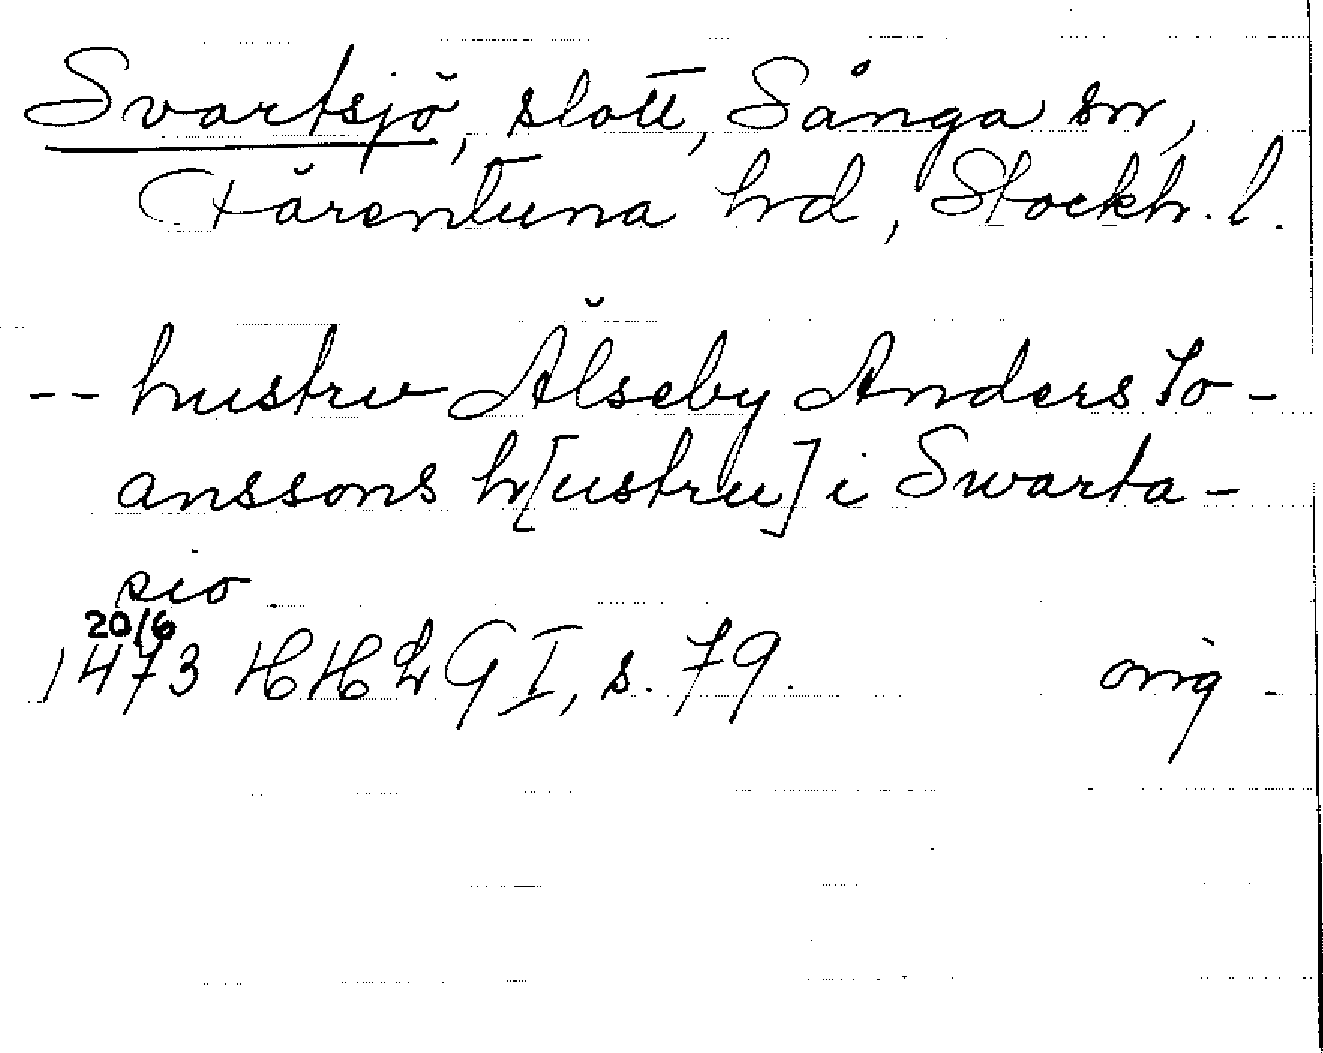 Svartsjö, slott, Sånga sn,
Färentuna hd, Stockh. l.
-- hustru Älseby Anders Jo-
anssons h[ustru] i Swarta-
sio
20/6
1473 HHLG I, s. 79. orig